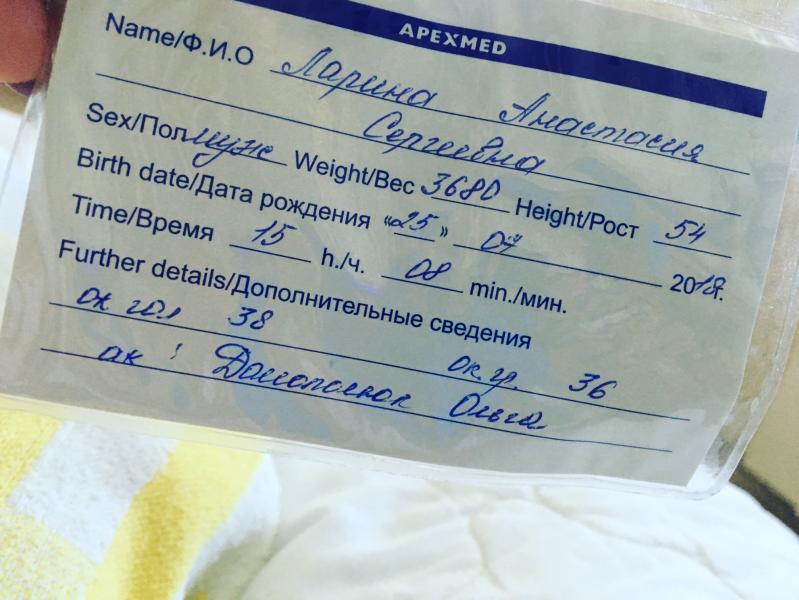 APEXMED
Name/Ф.И.О Ларина Анастасия
Сергеевна
Sex/Пол муж Weight/Вес 3680 Height/Рост 54
Birth date/Дата рождения «25» 07 2018г.
Time/Время 15 h./ч. 08 min./мин.
Further details/Дополнительные сведения
ок гол 38 ок.гр. 36
ак : Ольга